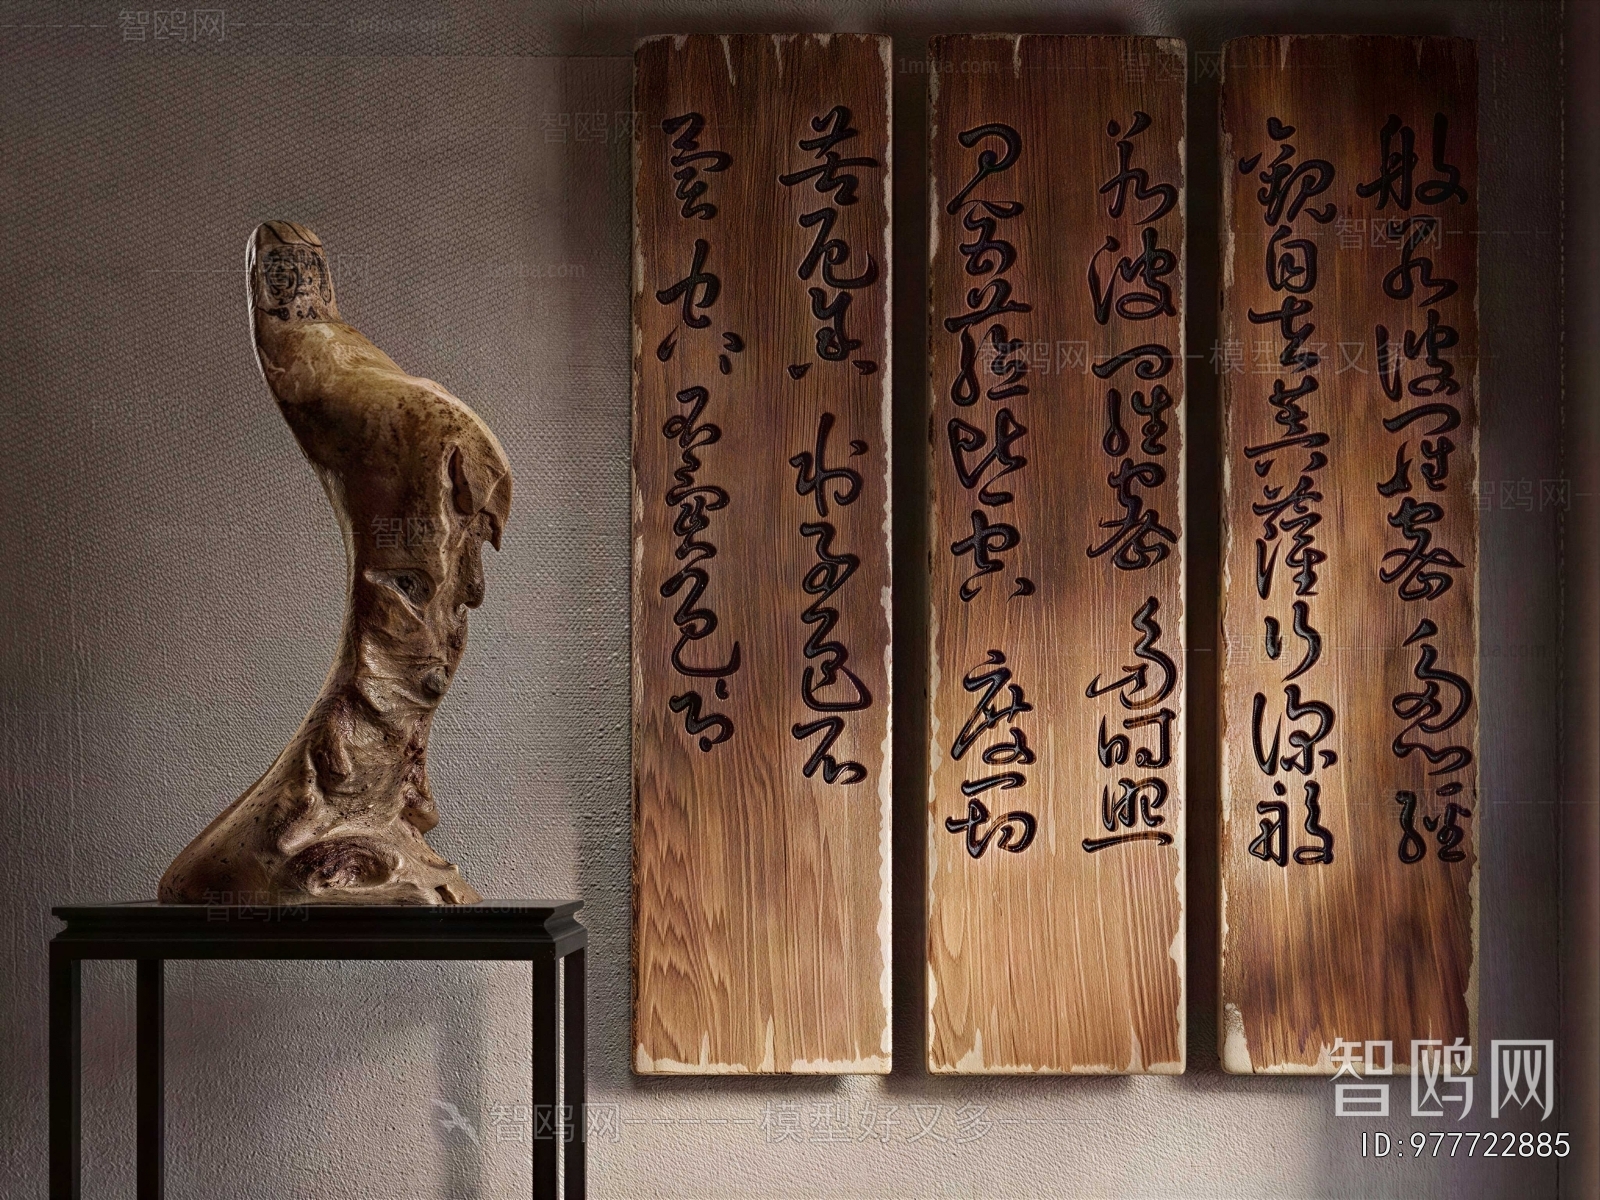 般若波羅蜜多心經
觀自在菩薩行深般
若波羅蜜多時照
見五蘊皆空度一切
苦厄舍利子色不
異空空不異色色即
智鸥网
ID:977722885
智鸥网 模型好又多